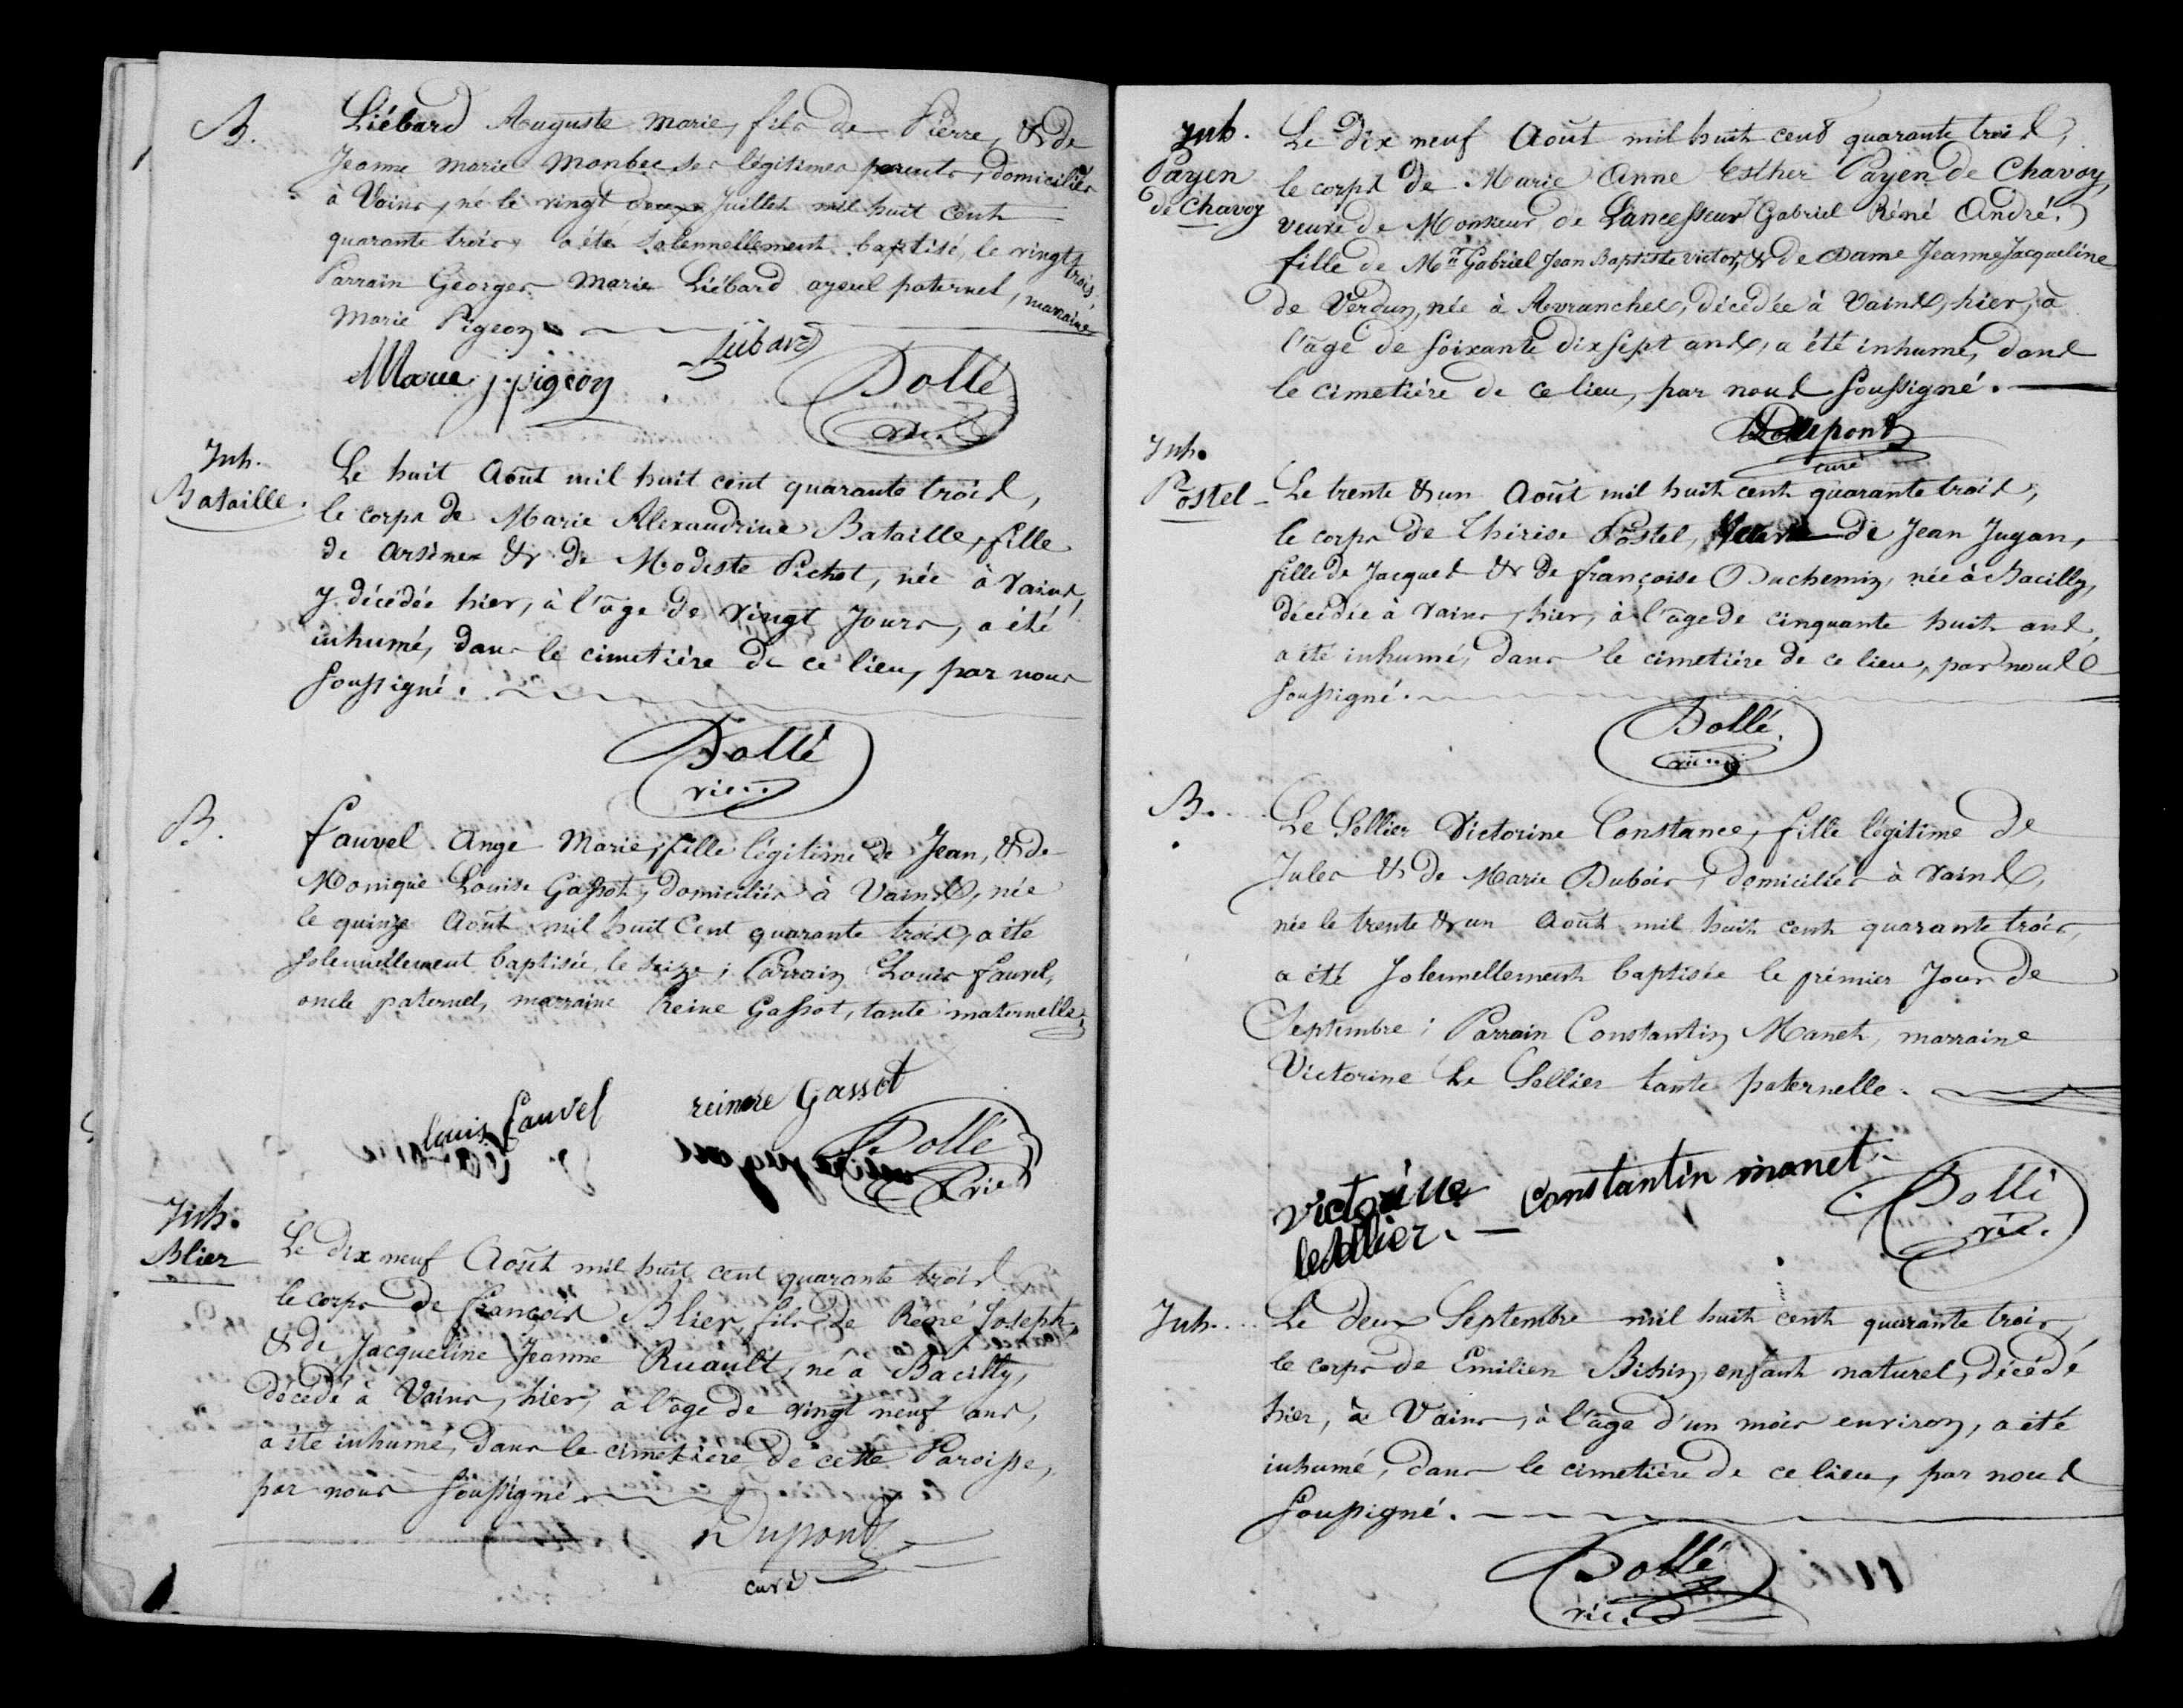 B.
Liébard Auguste Marie, fils de Pierre, & de
Jeanne Marie Monbec ses légitimes parents, domiciliés
à Vains, né le vingt deux Juillet mil huit cent
quarante trois, a été solennellement baptisé, le vingt trois,
Parrain Georges Marie Liébard ayeul paternel, marraine
Marie Pigeon
Liébard
Marie j. pigeon
Dollé
vic.
Inh.
Bataille.
Le huit Août mil huit cent quarante trois,
le corps de Marie Alexandrine Bataille, fille
de Arsène & de Modeste Pichot, née à Vains,
y décédée hier, à l'âge de vingt Jours, a été
inhumé, dans le cimetière de ce lieu, par nous
soussigné.
Dollé
vic.
B.
Fauvel Ange Marie, fille légitime de Jean, & de
Monique Louise Gassot, domiciliés à Vains, née
le quinze Août mil huit Cent quarante trois, a été
solennellement baptisée, le seize; Parrain Louis Fauvel,
oncle paternel, marraine Reine Gassot, tante maternelle,
louis fauvel
Gassot
Dollé
vic
Inh.
Blier
Le dix neuf Août mil huit cent quarante trois
le corps de François Blier, fils de Réné Joseph,
& de Jacqueline Jeanne Ruault, né à Bacilly,
décédé à Vains, hier, à l'âge de vingt neuf ans,
a été inhumé, dans le cimetière de cette Paroisse,
par nous soussigné.
Dupont
curé
Inh.
Payen
de Chavoy
Le dix neuf Août mil huit cent quarante trois,
le corps de Marie Anne Esther Payen de Chavoy,
veuve de Monsieur de Lancesseur Gabriel Réné André.
fille de Mr Gabriel Jean Baptiste Victor, & de Dame Jeanne Jacqueline
de Verdun, née à Avranches, décédée à Vains, hier, à
l'âge de soixante dix sept ans, a été inhumé, dans
le cimetière de ce lieu, par nous soussigné.
Dupont
curé
Inh.
Postel
Le trente & un Août mil huit cent quarante trois,
le corps de Thérise Postel, de Jean Jugan,
fille de Jacques & de Françoise Duchemin, née à Bacilly,
décédée à Vains, hier, à l'âge de cinquante huit ans,
a été inhumé, dans le cimetière de ce lieu, par nous
soussigné.
Dollé.
vic.
B.
Le Sellier Victorine Constance, fille légitime de
Jules & de Marie Dubois, domiciliés à Vains,
née le trente & un Août mil huit cent quarante trois,
a été solennellement baptisée le prémier Jour de
Septembre; Parrain Constantin Manet, marraine
Victorine Le Sellier tante paternelle.
victorine
lesellier. constantin manet
Dollé
vic.
Inh.
Le deux Septembre mil huit cent quarante trois,
le corps de Emilien Bishin, enfant naturel, décédé
hier, à Vains, à l'âge d'un mois environ, a été
inhumé, dans le cimetière de ce lieu, par nous
soussigné.
Dollé
vic.